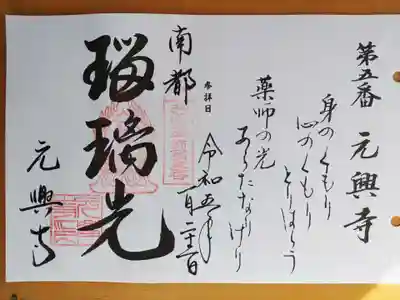 第五番 元興寺
身のくもり
心のくもり
とりはらう
薬師の光
あらたなりけり
参拝日
令和五年
一月二十二日
南都
瑠璃光
元興寺